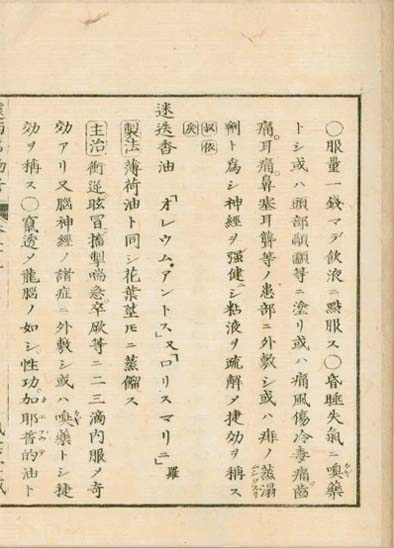 〇服量一錢マデ飲液ニ點服ス〇昏睡失氣ニ嗅藥
トシ或ハ頭部顳顬等ニ塗リ或ハ痛風傷冷毒痛齒
痛耳痛鼻塞耳聾等ノ患部ニ外敷シ或ハ痱ノ蒸溻
劑ト爲シ神經ヲ强健ニシ粘液ヲ疏解メ捷効ヲ稱ス
叔依
灰
迷迭香油「オレウム、アントス」又「ロリスマリニ」羅
製法薄荷油ト同シ花葉莖圧ニ蒸餾ス
主治衝逆眩冒搐掣喘急卒厥等ニ二三滴内服メ奇
効アリ又腦神經ノ諸症ニ外敷シ或ハ嗅藥トシ捷
効ヲ稱ス〇竄透メ龍腦ノ如シ性功加耶普的油ト